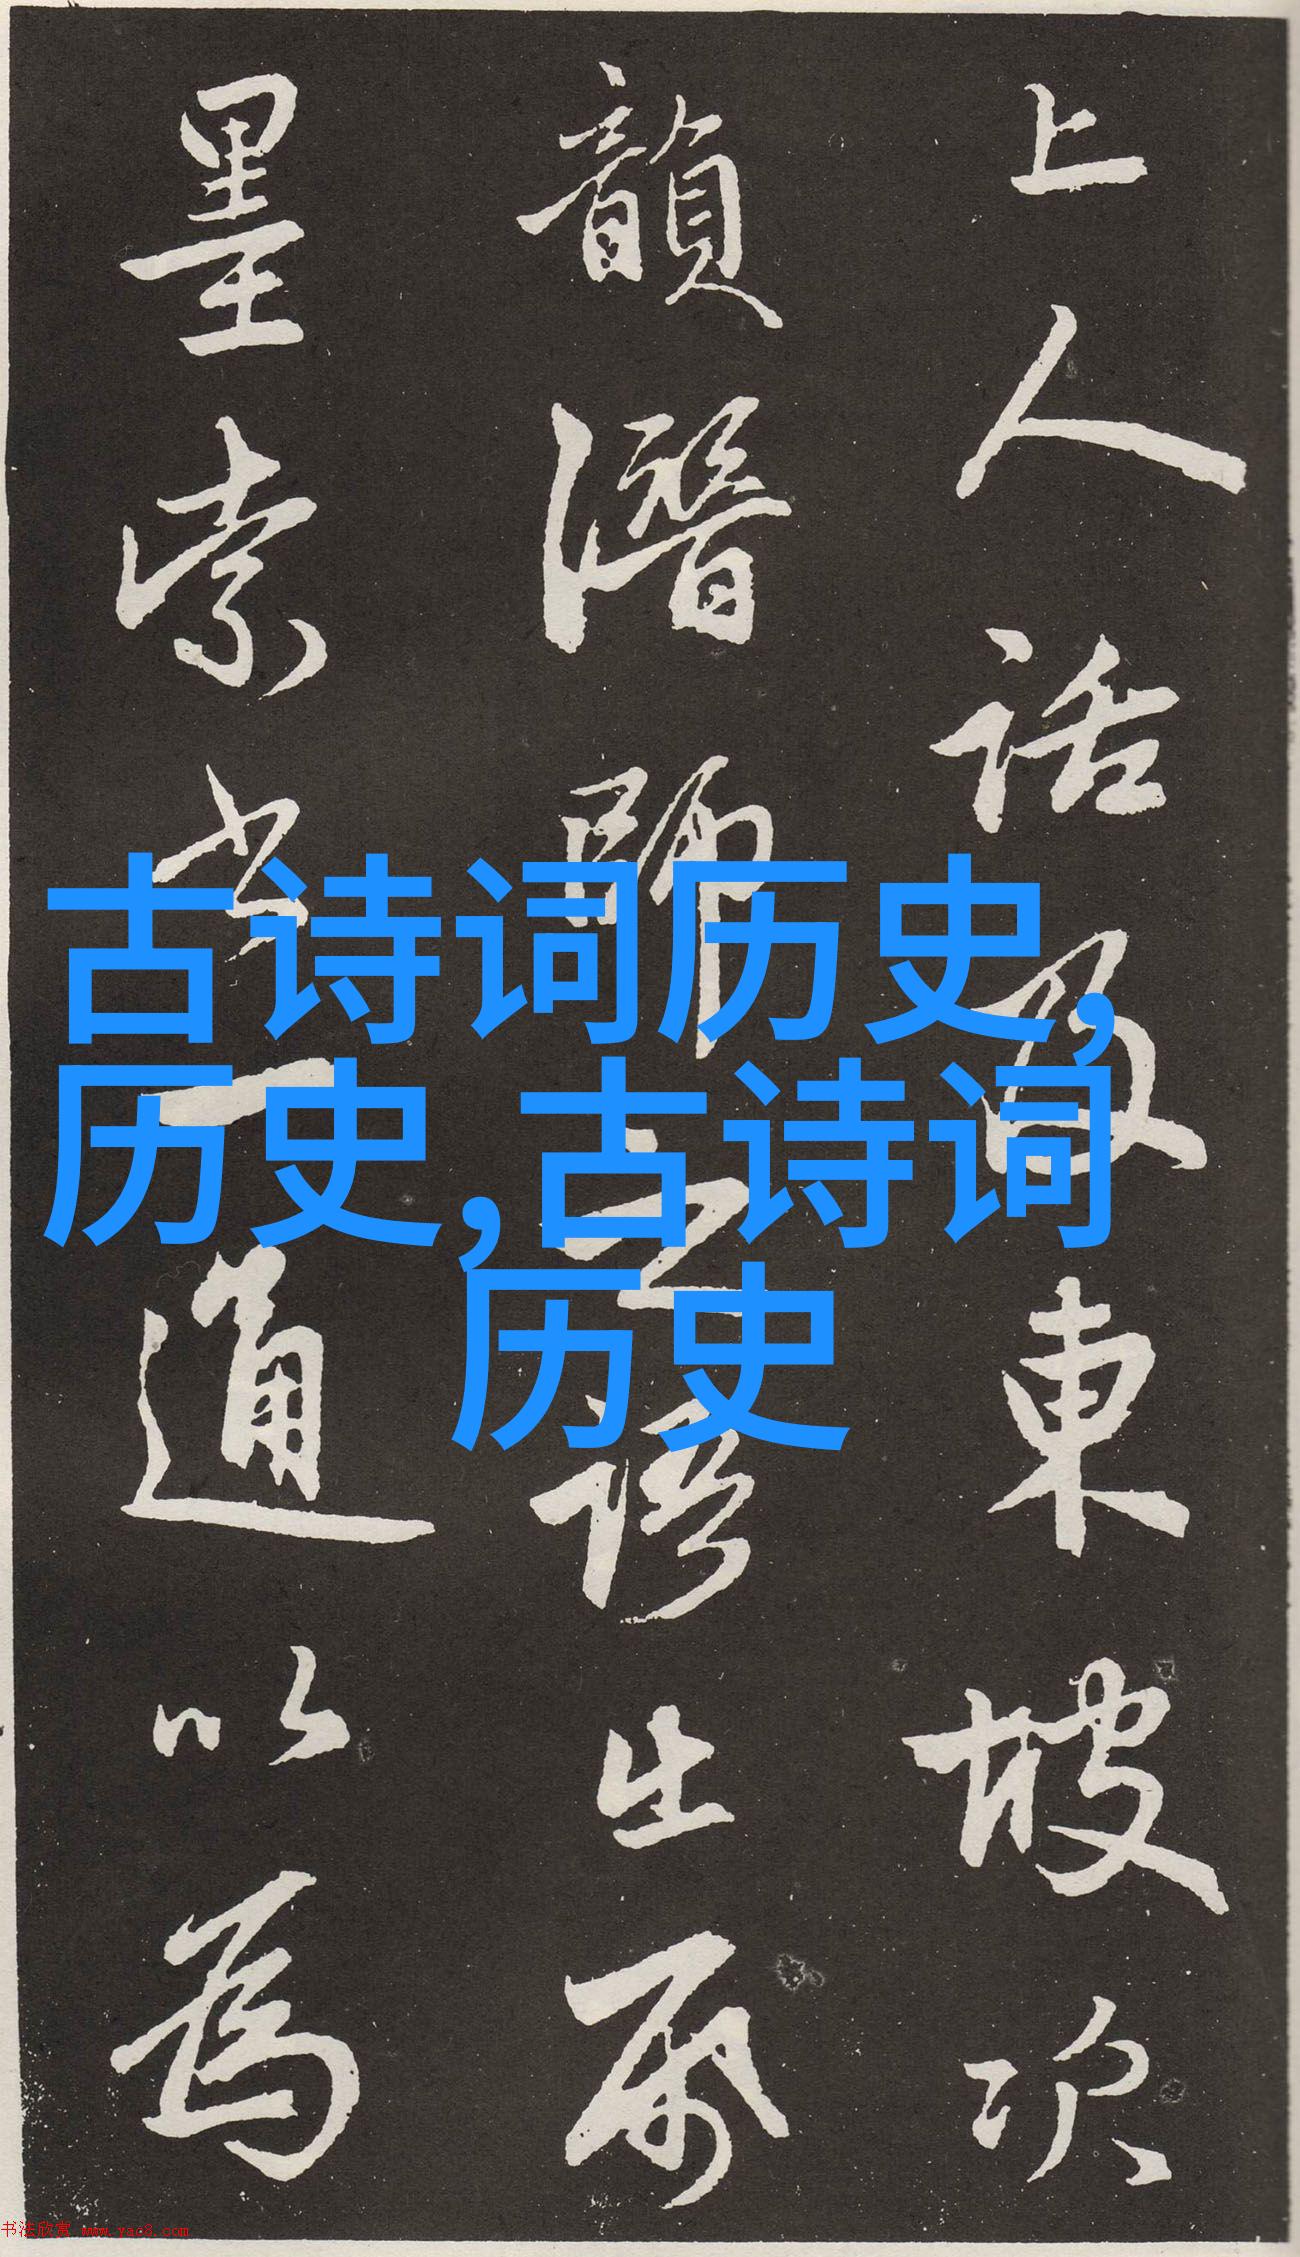 上人話及東坡次
韻潛師之語生
墨索書一通以為
古诗词历史,
历史,古诗词
历史
书法欣赏 www.yac8.com